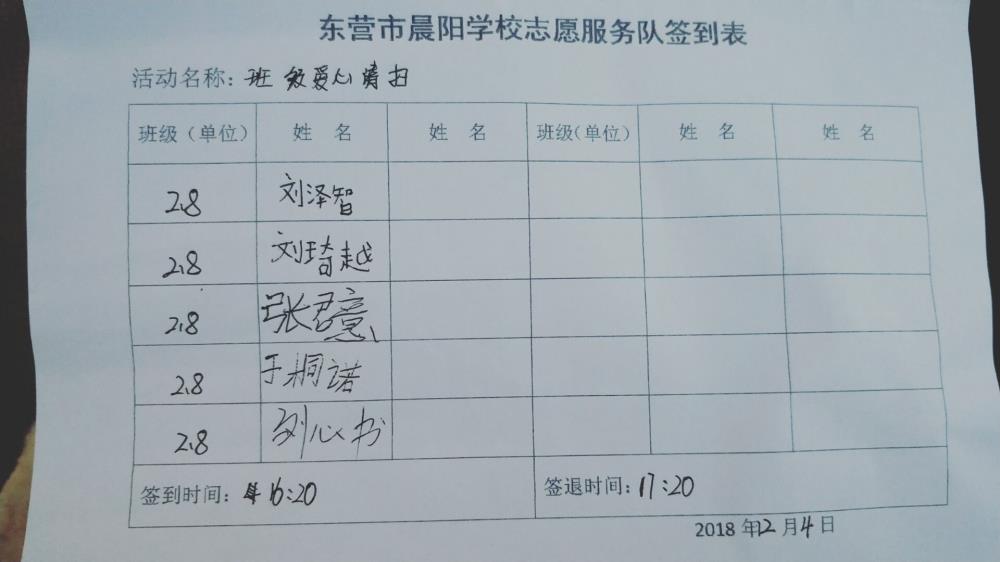 东营市晨阳学校志愿服务队签到表
活动名称：班级爱心清扫
班级（单位） 姓 名 姓 名 班级（单位） 姓 名 姓 名
2.8 刘泽智
2.8 刘琦越
2.8 张君意
2.8 于桐诺
2.8 刘心书
签到时间：16:20 签退时间：17:20
2018年12月4日